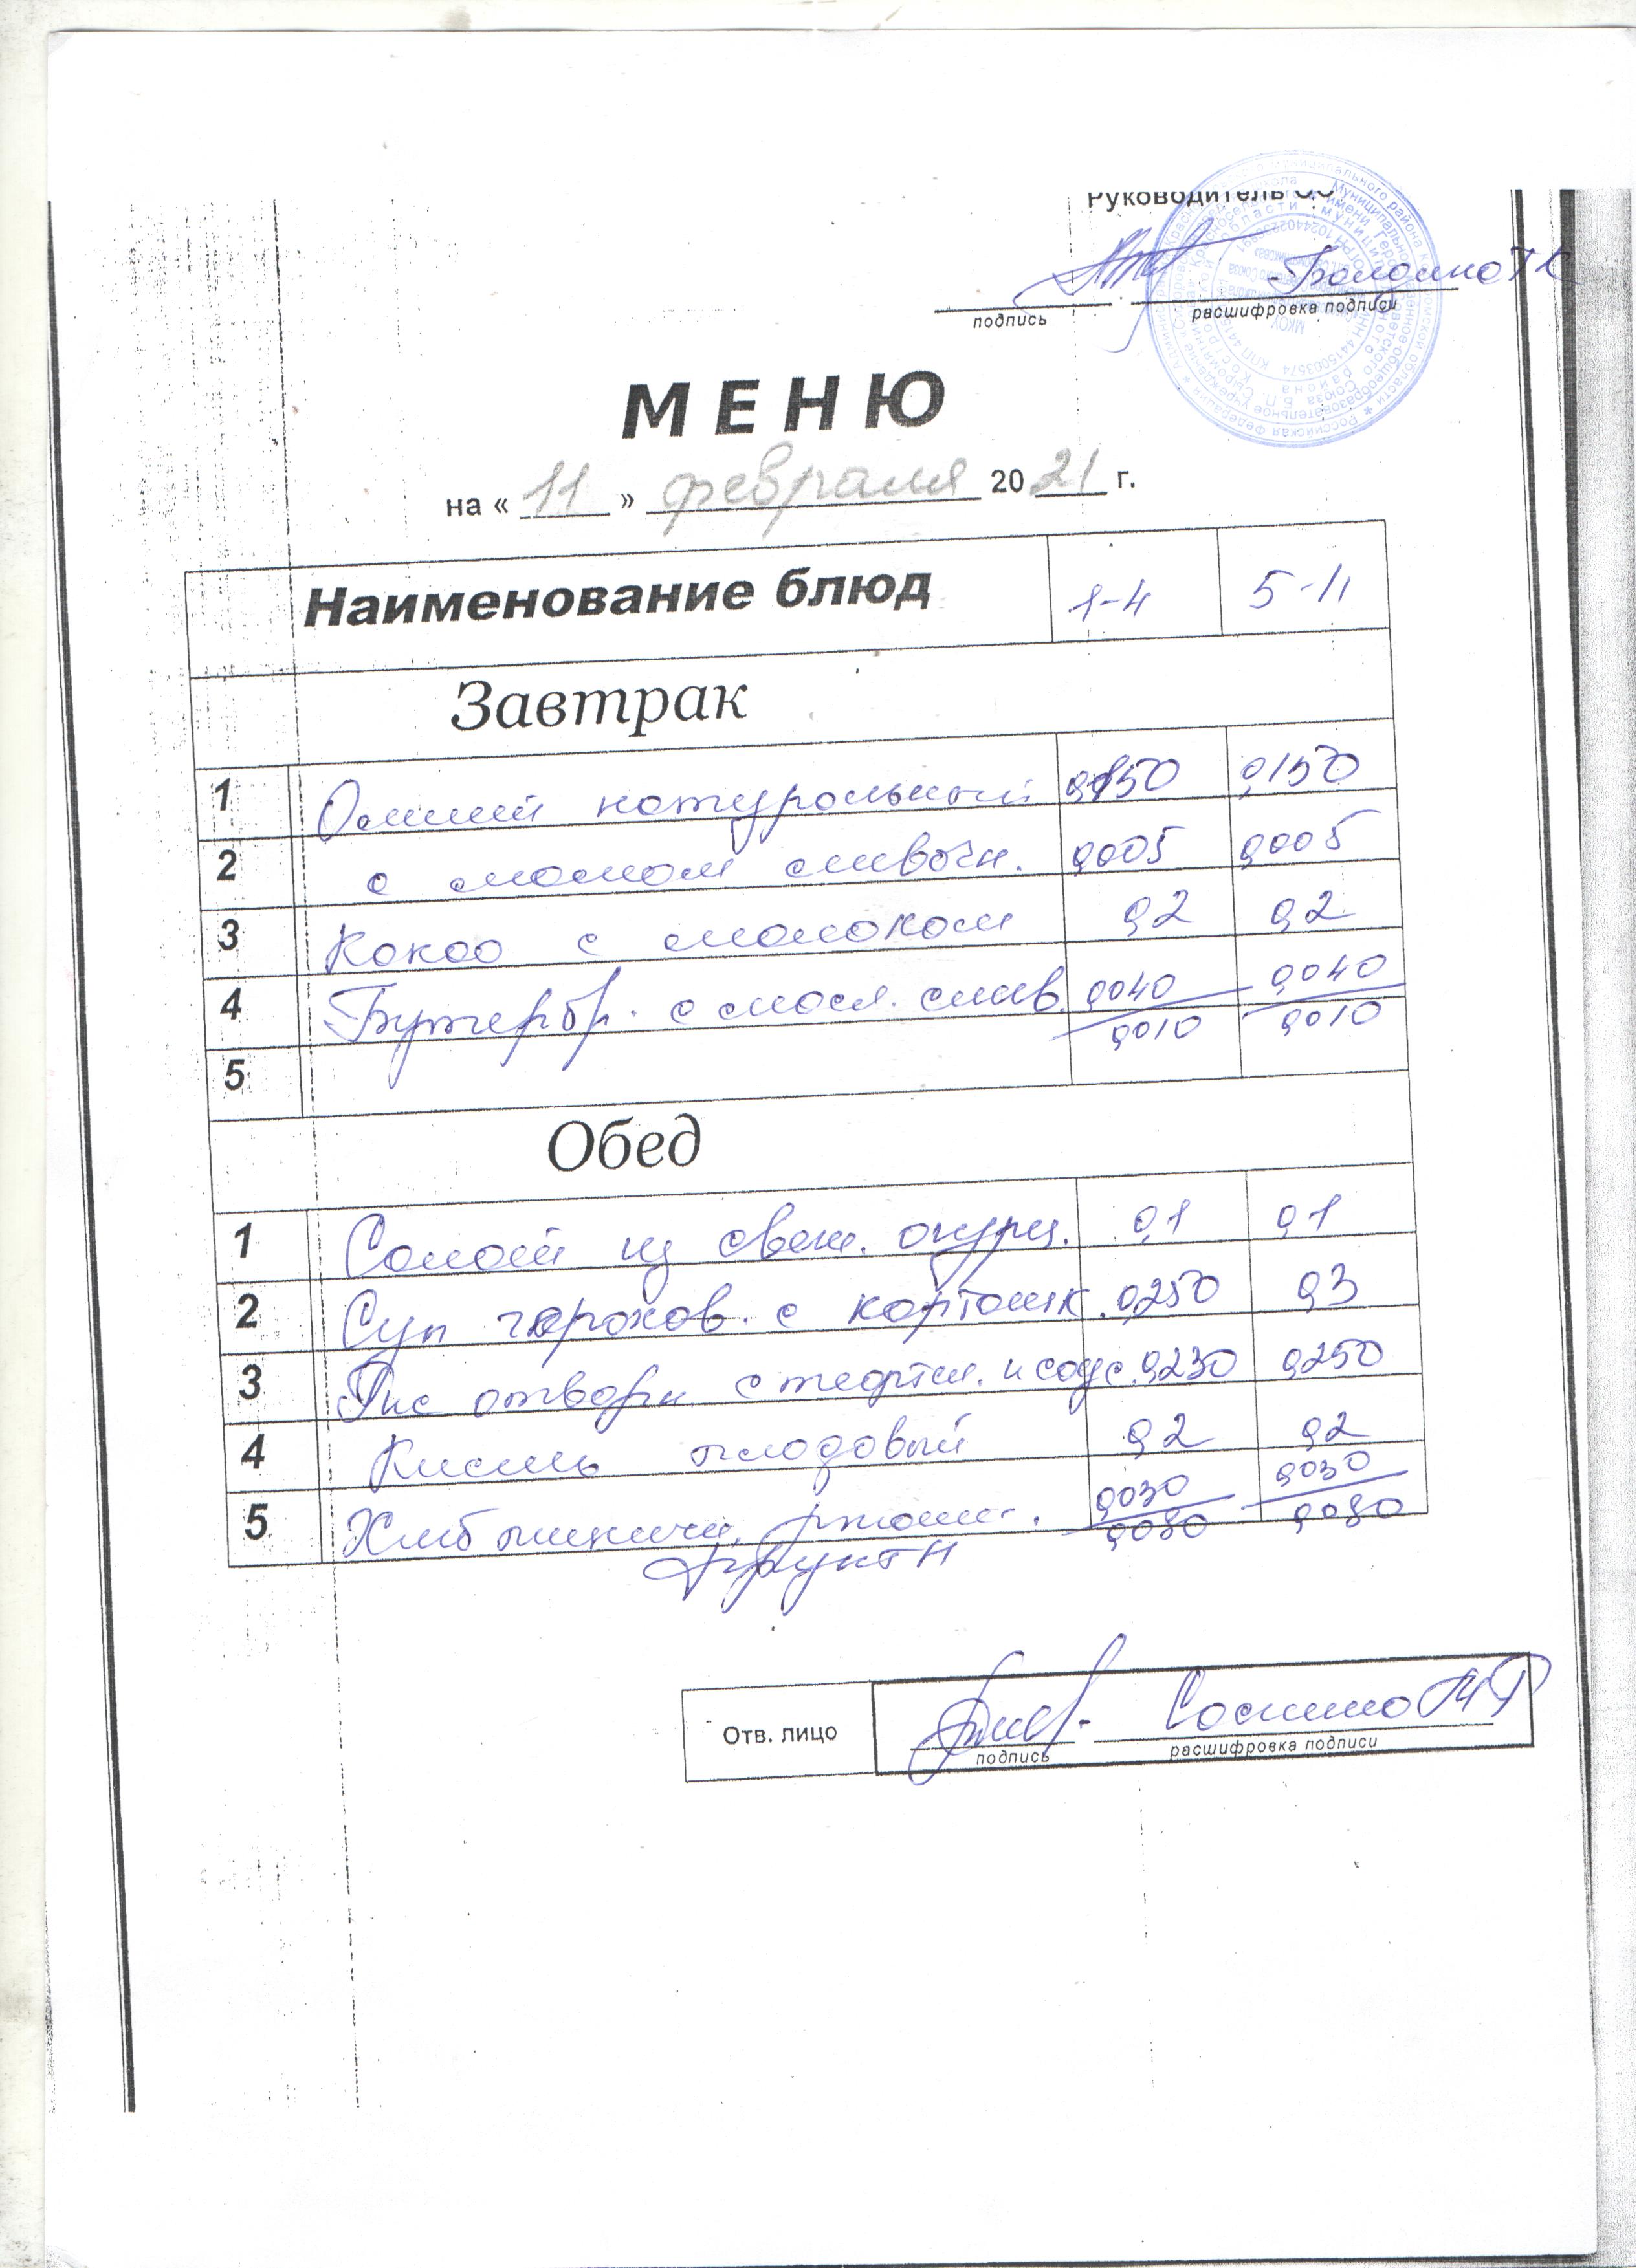 Руководитель ОО
Балдина Т К
подпись расшифровка подписи
МЕНЮ
на « 11 » февраля 20 21 г.
Наименование блюд 1-4 5-11
Завтрак
1 Омлет натуральный 0,150 0,150
2 с маслом сливочн. 0,005 0,005
3 Какао с молоком 0,2 0,2
4 Бутербр. с масл. слив. 0,040 0,040
5 0,010 0,010
Обед
1 Салат из свеж. огурц. 0,1 0,1
2 Суп горохов. с картошк. 0,250 0,3
3 Рис отварн. с тефтел. и соус. 0,230 0,250
4 Кисель плодовый 0,2 0,2
0,030 0,030
5 Хлеб пшенич, ржаной. 0,080 0,080
фрукты
Отв. лицо
подпись расшифровка подписи